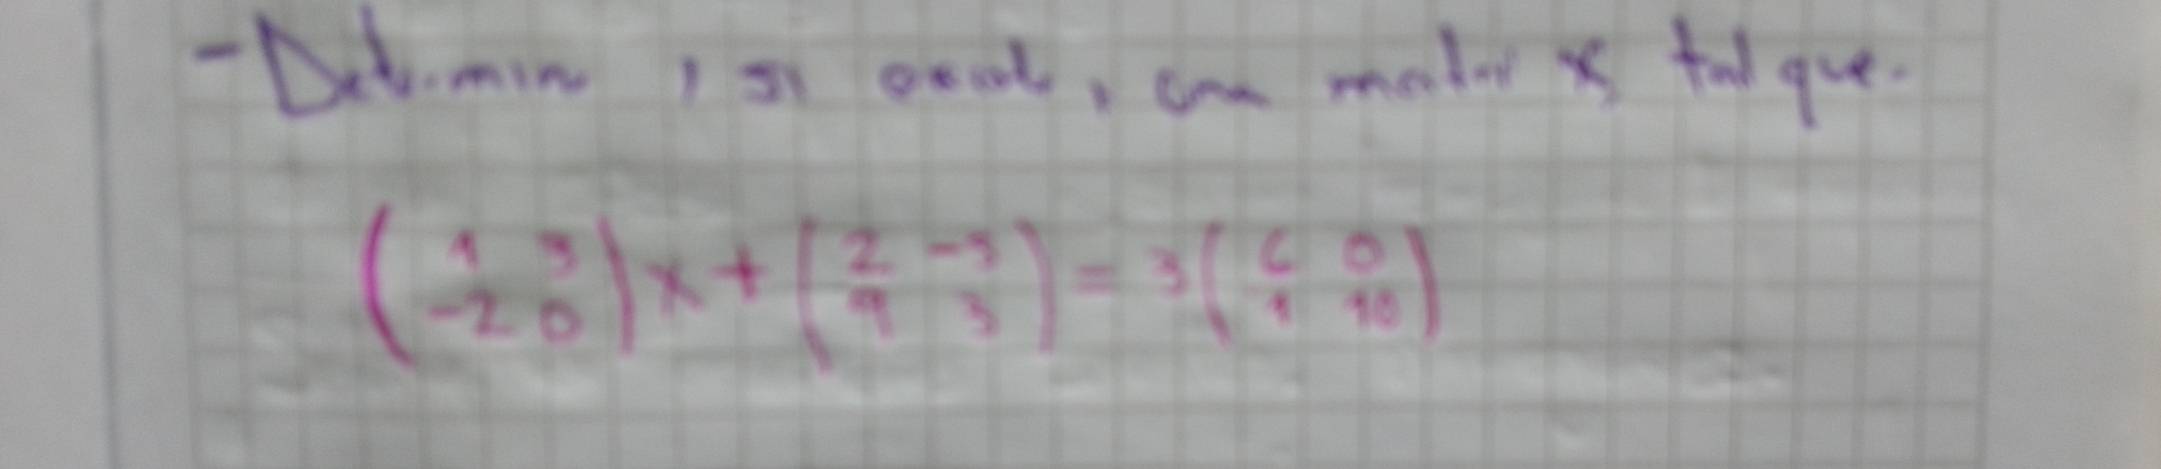 - Determine, si existe, una matriz x tal que.
( 1 3 ) x + ( 2 -3 ) = 3 ( 6 0 )
-2 0 9 3 1 10